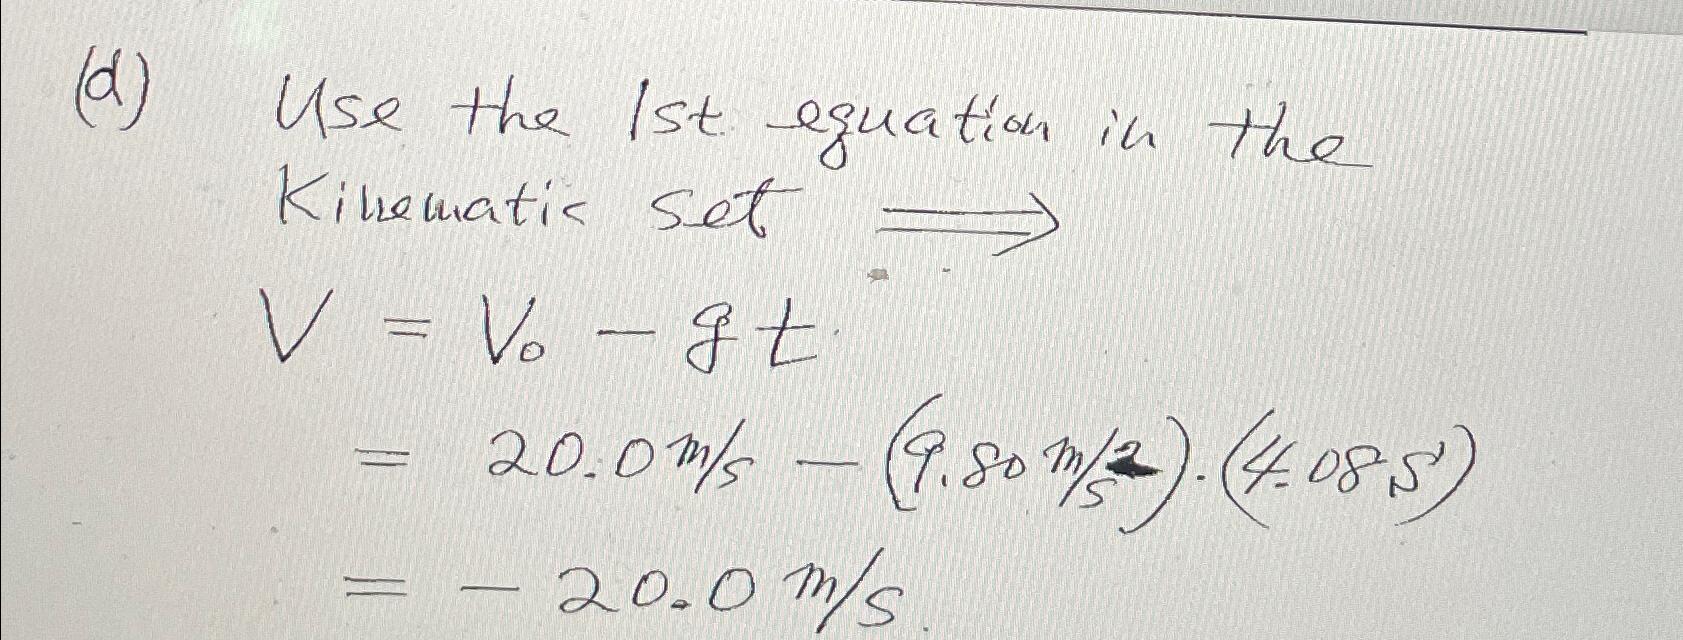 (d) Use the 1st equation in the
Kinematic set ⟹
V = V₀ - gt
= 20.0 m/s - (9.80 m/s²).(4.08 s)
= - 20.0 m/s.